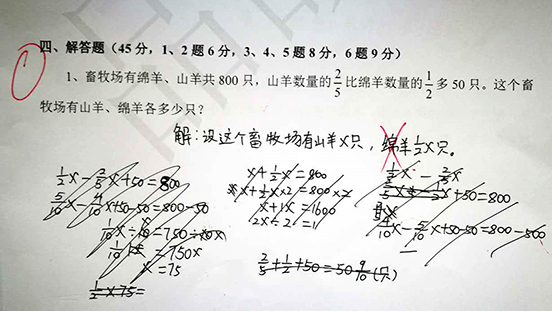 四、解答题（45分，1、2题6分，3、4、5题8分，6题9分）
1、畜牧场有绵羊、山羊共800只，山羊数量的2/5比绵羊数量的1/2多50只。这个畜
牧场有山羊、绵羊各多少只？
解：设这个畜牧场有山羊X只，绵羊1/2X只。
1/2X-2/5X+50=800
5/10X-4/10X+50-50=800-50
1/10X÷
=750X
X=75
1/2×75=
X+1/2X=800
X+1/2X×2=800×2
X+1X=1600
2X÷2=1
2/5+1/2+50=50 9/10(只)
1/2X-2/5X
X+50=800
4/10X-5/10X+50-50=800-500